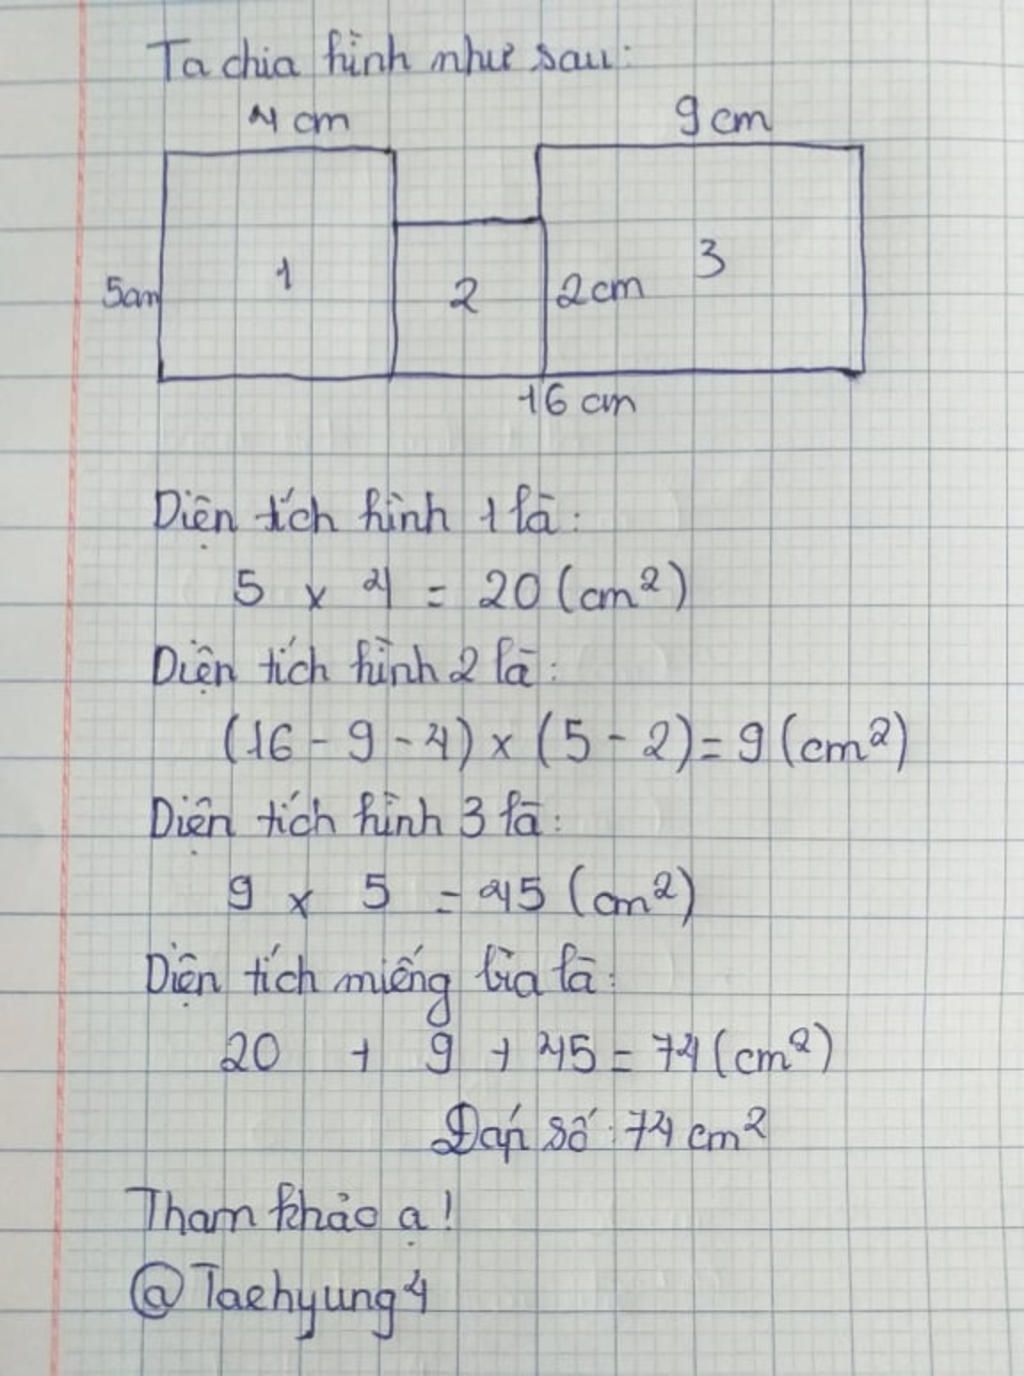 Ta chia hình như sau:
4 cm
9 cm
5cm
1
2
2cm
3
16 cm
Diện tích hình 1 là:
5 x 4 = 20 (cm2)
Diện tích hình 2 là:
(16 - 9 - 4) x (5 - 2) = 9 (cm2)
Diện tích hình 3 là:
9 x 5 = 45 (cm2)
Diện tích miếng bìa là:
20 + 9 + 45 = 74 (cm2)
Đáp số: 74 cm2
Tham khảo ạ!
@Taehyung4